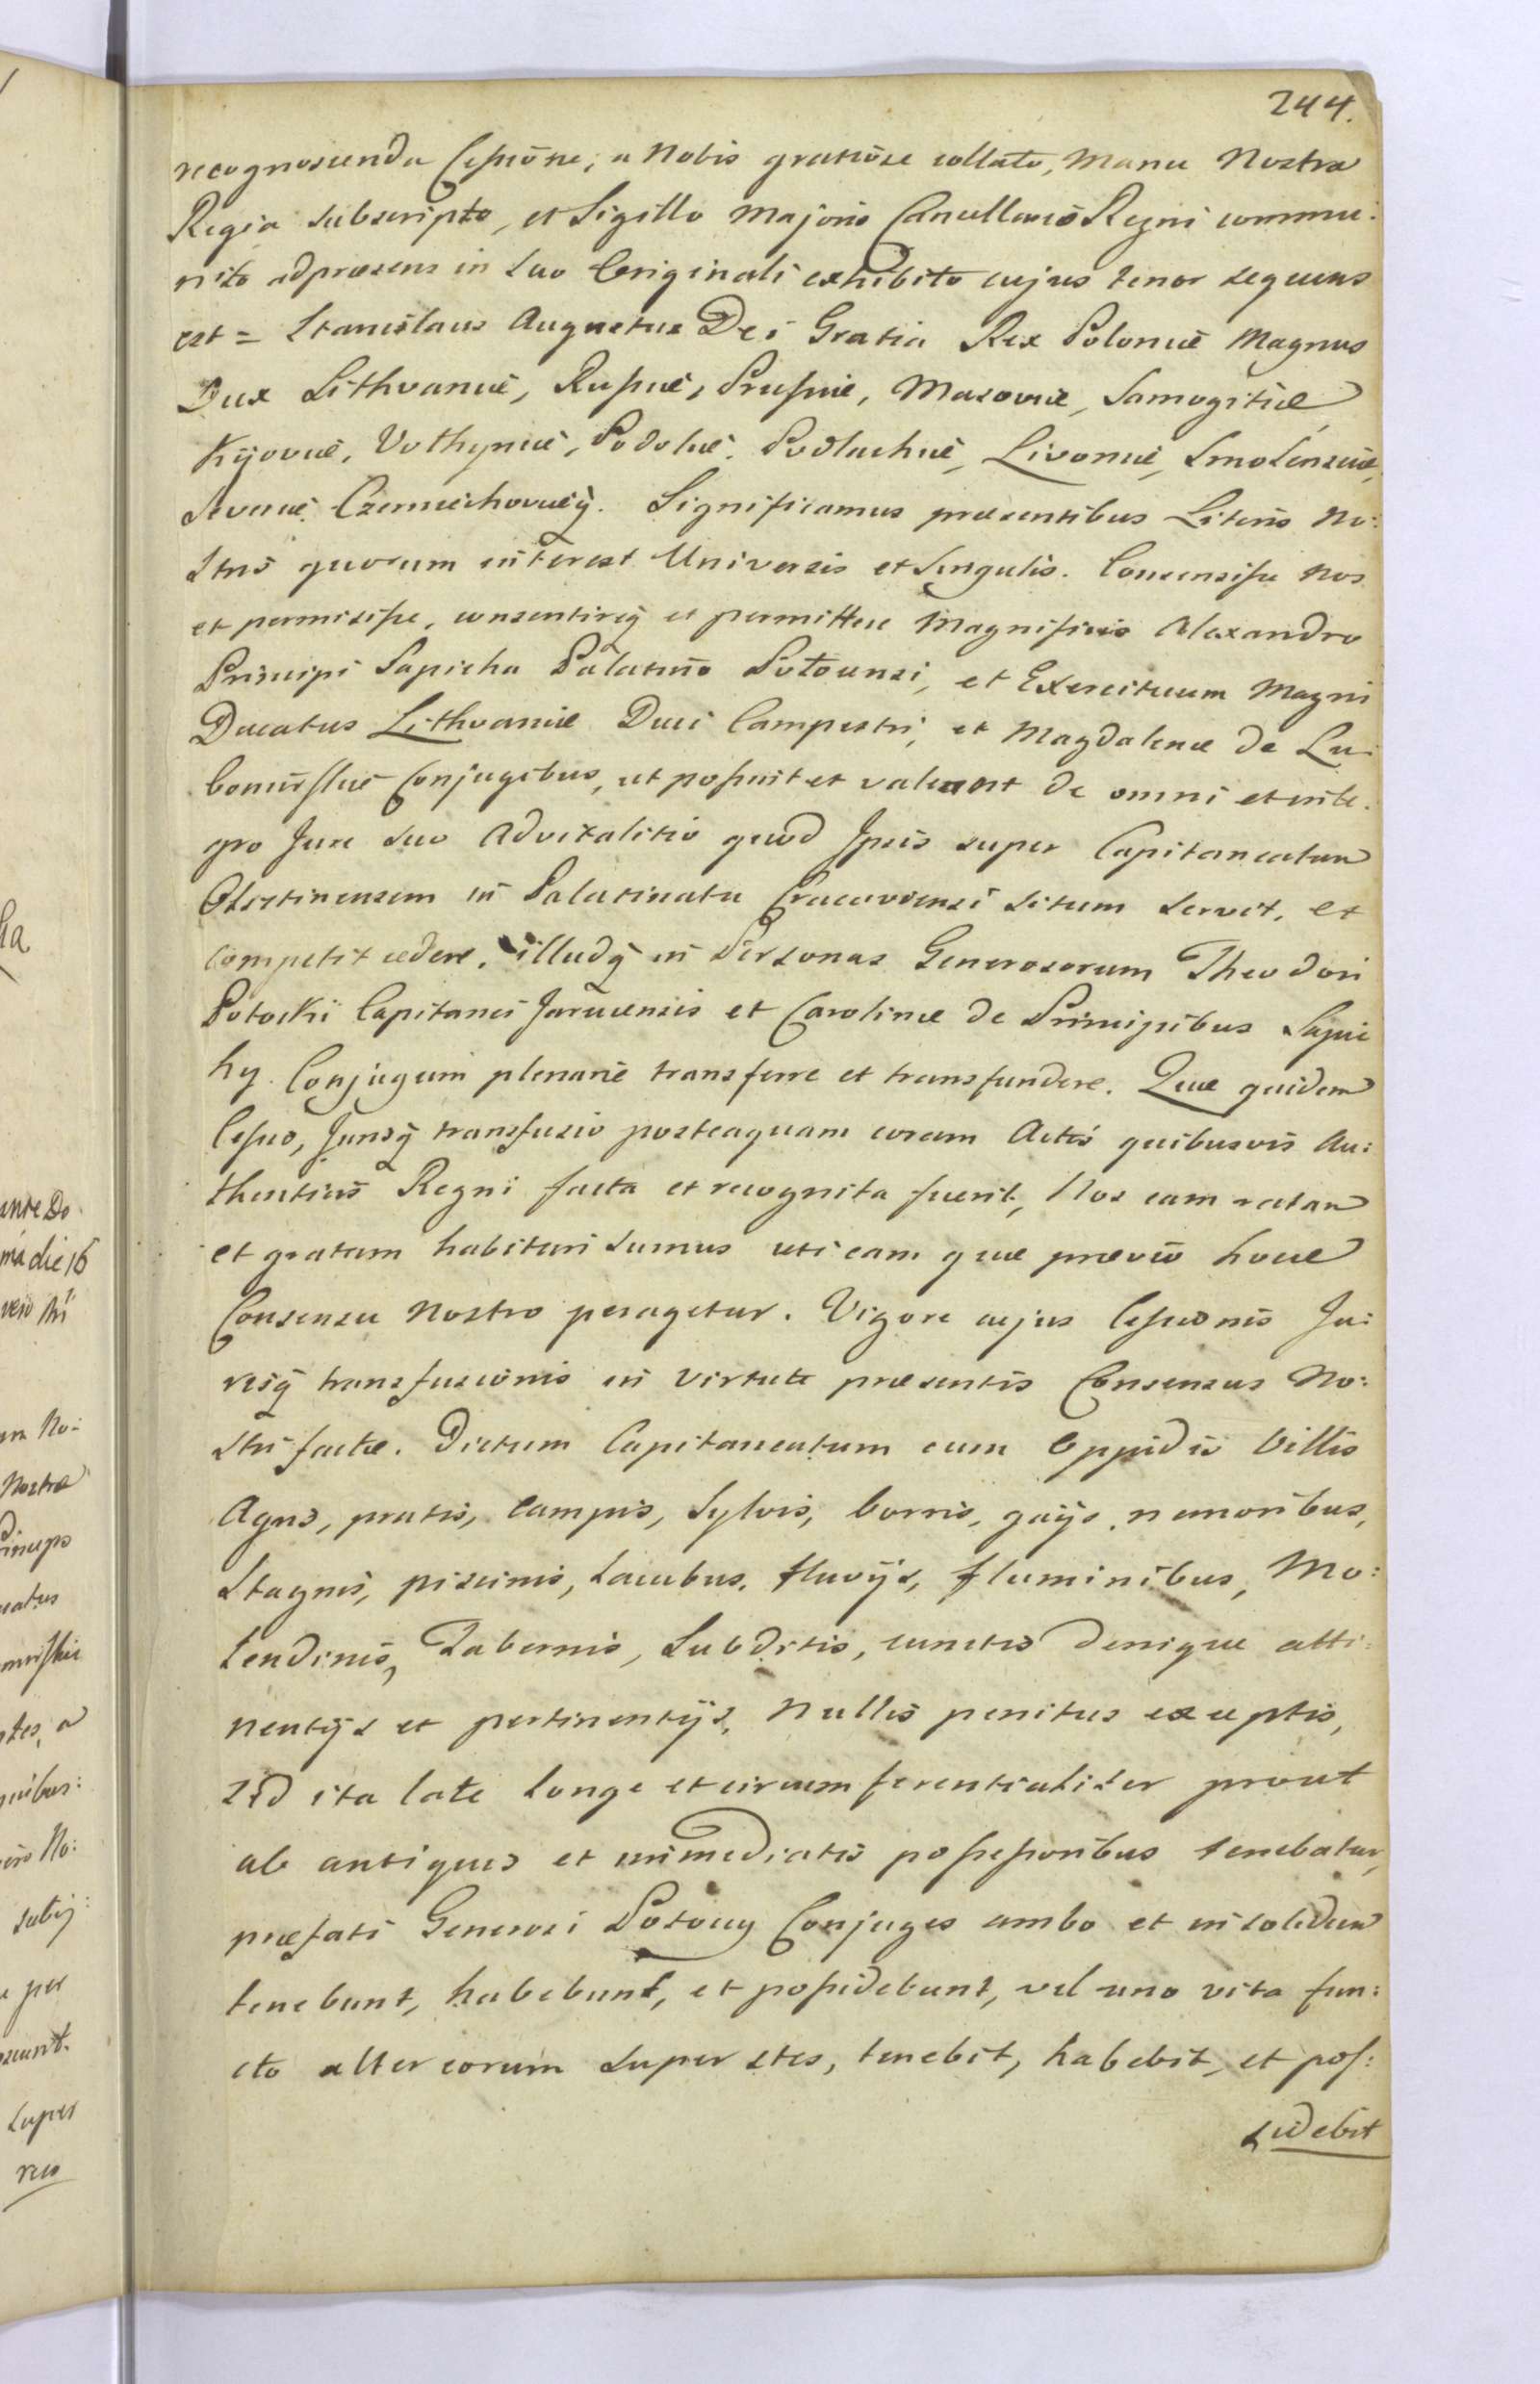 244.
recognoscenda Cessione, a Nobis gratiose collato, Manu Nostra
Regia subscripto, et Sigillo Majoris Cancellariæ Regni commu:
nito ad præsens in suo Originali exhibito cujus tenor sequens
est = Stanislaus Augustus Dei Gratia Rex Poloniæ Magnus
Dux Lithvaniæ, Russiæ, Prussiæ, Masoviæ, Samogitiæ
Kijoviæ, Volhyniæ, Podoliæ, Podlachiæ, Livoniæ, Smolensciæ,
Severiæ Czerniechoviæq̃. Significamus præsentibus Literis No:
stris quorum interest Universis et Singulis. Consensisse Nos
et permisisse, consentireq̃ et permittere Magnificis Alexandro
Principi Sapieha Palatino Polocensi, et Exercituum Magni
Ducatus Lithvaniæ Duci Campestri, et Magdalenæ de Lu:
bomirskie Conjugibus, ut possint et valeant de omni et inte:
gro Jure suo Advitalitio quod Ipsis super Capitaneatum
Olsztinensem in Palatinatu Cracoviensi situm servit, et
competit cedere, illudq̃ in Personas Generosorum Theodori
Potocki Capitanei et Carolinæ de Principibus Sapie
hÿ Conjugum plenarie transferre et transfundere. Quæ quidem
Cessio, Jurisq̃ transfusio posteaquam coram Actis quibusvis Au:
thenticis Regni facta et recognita fuerit, Nos eam ratam
et gratam habituri sumus uti eam quæ prævio hocce
Consensu Nostro peragetur. Vigore cujus Cessionis Ju:
risq̃ transfusionis in virtute præsentis Consensus No:
stri factæ. Dictum Capitaneatum cum Oppidis Villis
Agris, pratis, Campis, Sylvis, borris, gaijs, nemoribus,
Stagnis, piscinis, Lacubus, fluvijs, fluminibus, Mo:
lendinis, Tabernis, Subditis, cunctis denique atti:
nentijs et pertinentijs, Nullis penitus exceptis,
sed ita late longe et circumferentialiter prout
ab antiquis et immediatis possessoribus tenebatur,
præfati Generosi Potoccy Conjuges ambo et in solidum
tenebunt, habebunt, et possidebunt, vel uno vita fun:
cto alter eorum superstes, tenebit, habebit, et pos:
sidebit